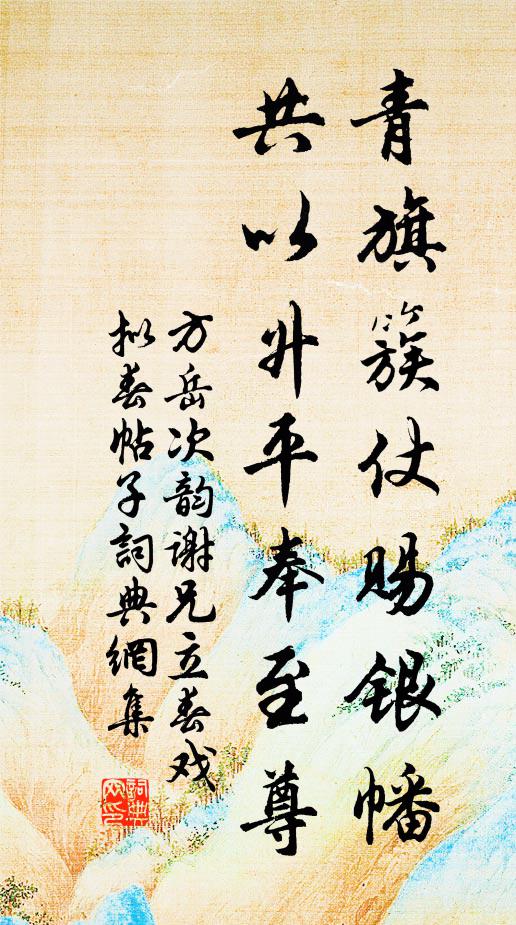 青旗簇仗赐银幡
共以升平奉至尊
方岳次韵谢兄立春戏
拟春帖子詞典網集
詞典网印